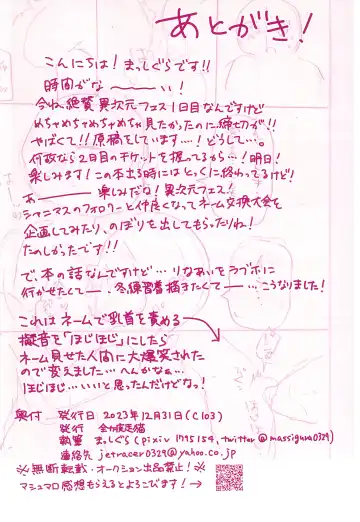 あとがき!
こんにちは! まっしぐらです!!
時間がな〜〜〜い!
今ね、絶賛異次元フェス1日目なんですけど
めちゃめちゃめちゃめちゃ見たかったのに締切が!!
やばくて!! 原稿をしています…! どうして…。
何故なら2日目のチケットを握ってるから…! 明日!
楽しみます! この本出る時にはとっくに終わってるけど!
あ―― 楽しみだな! 異次元フェス!
シャニマスのフォロワーと仲良くなってネーム交換大会を
企画してみたり、のぼりを出してもらったりね!
たのしかったです!!
で、本の話なんですけど…りなあいをラブホに
行かせたくて―、冬練習着描きたくて―…こうなりました!
これはネームで乳首を責める
擬音を「ほじほじ」にしたら
ネーム見せた人間に大爆笑された
ので変えました…へんかなぁ…
ほじほじ…いいと思ったんだけどなっ!
奥付 発行日 2023年12月31日(C103)
発行 全力疾走猫
執筆 まっしぐら(pixiv 1795154, twitter @massigura0329)
連絡先 jetracer0329@yahoo.co.jp
※無断転載・オークション出品禁止!※
マシュマロ感想もらえるとよろこびます!→